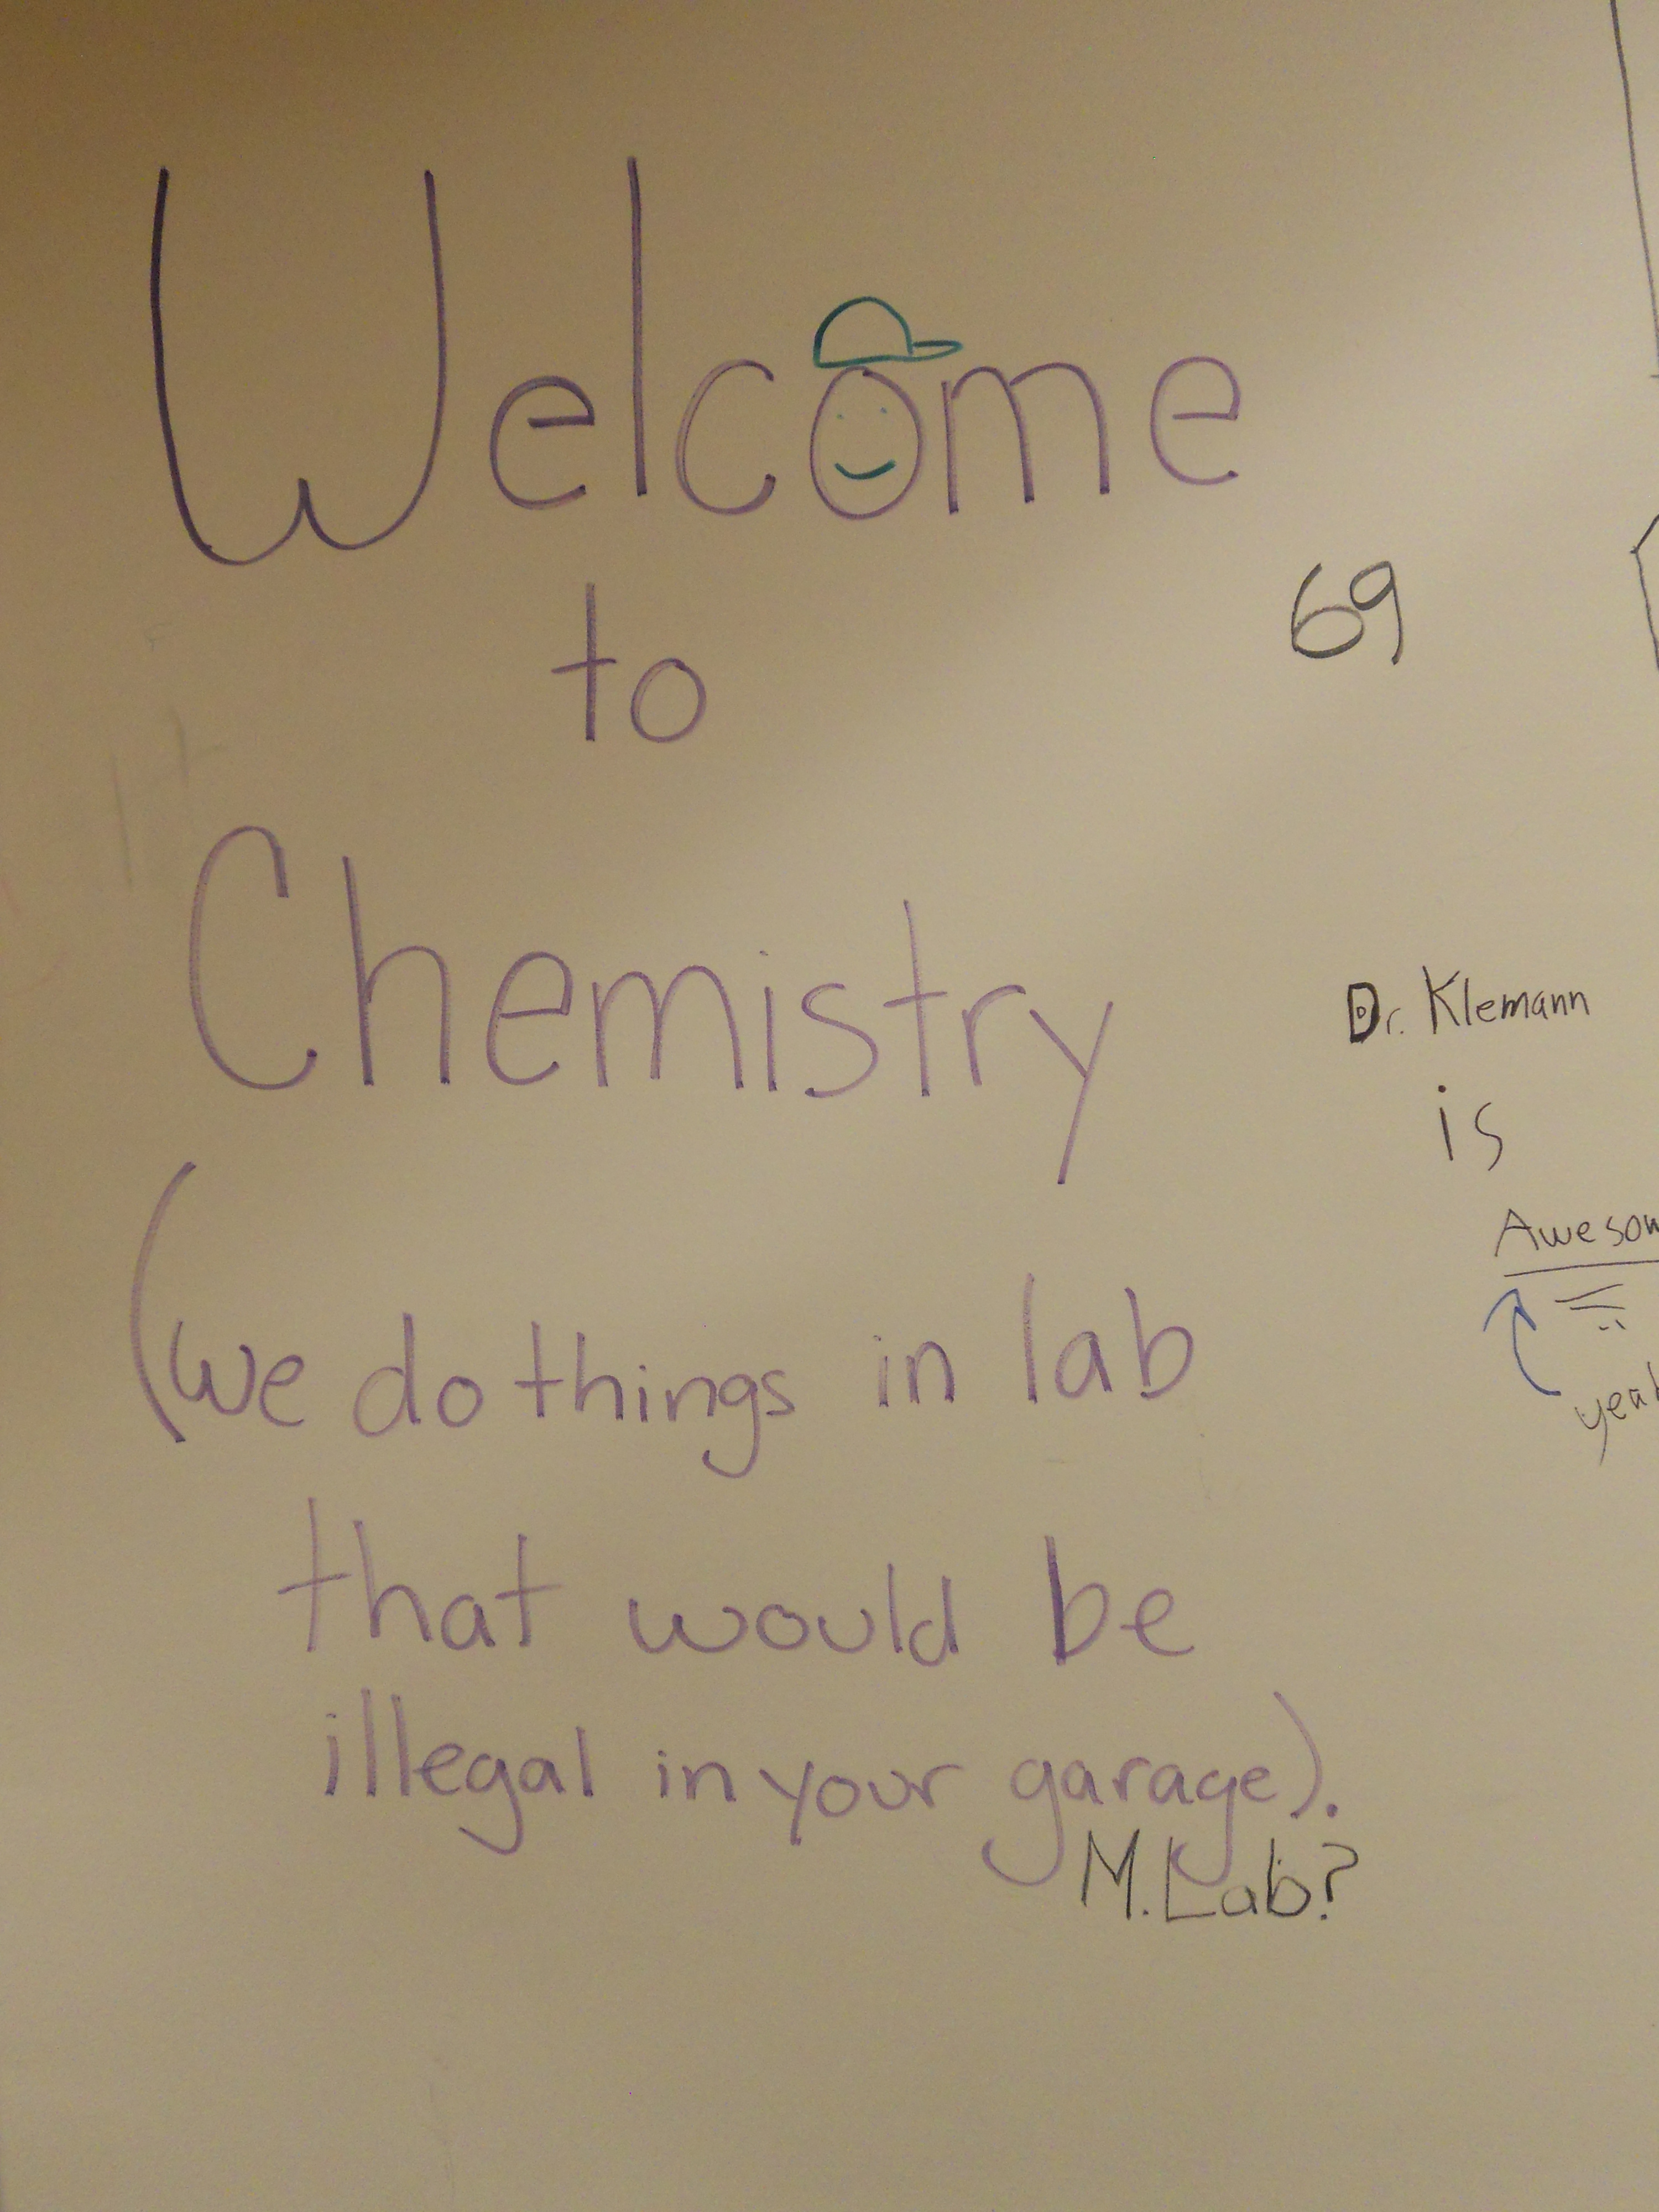 Welcome
to
69
Chemistry
(we do things in lab
that would be
illegal in your garage).
M.Lab?
Dr. Klemann
is
Awesom
yeah